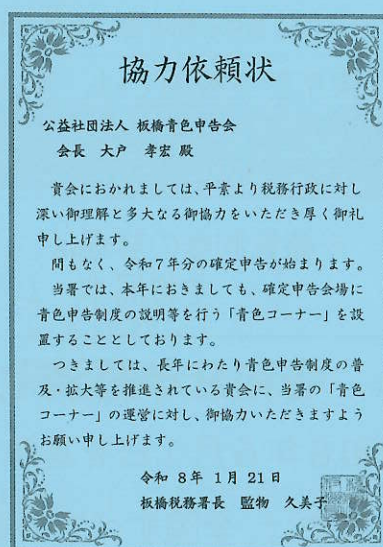 協力依頼状
公益社団法人 板橋青色申告会
会長 大戸 孝宏 殿
貴会におかれましては、平素より税務行政に対し
深い御理解と多大なる御協力をいただき厚く御礼
申し上げます。
間もなく、令和7年分の確定申告が始まります。
当署では、本年におきましても、確定申告会場に
青色申告制度の説明等を行う「青色コーナー」を設
置することとしております。
つきましては、長年にわたり青色申告制度の普
及・拡大等を推進されている貴会に、当署の「青色
コーナー」の運営に対し、御協力いただきますよう
お願い申し上げます。
令和 8年 1月 21日
板橋税務署長 監物 久美子